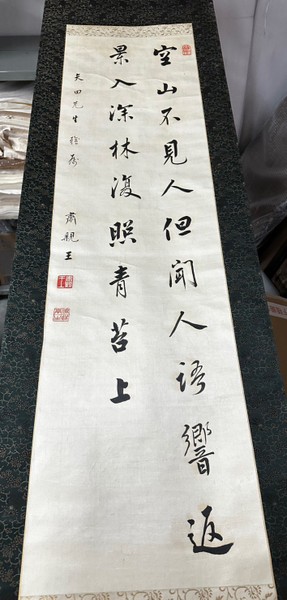 空山不見人但聞人語響返
景入深林復照青苔上
矢田先生
肅親王